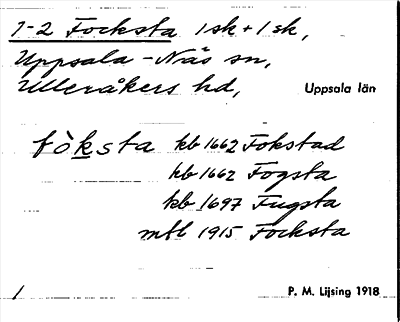 1-2 Focksta 1 sk + 1 sk,
Uppsala-Näs sn,
Ulleråkers hd, Uppsala län
fò̀ksta kb 1662 Fokstad
kb 1662 Fogsta
kb 1697 Fugsta
mtl 1915 Focksta
1 P. M. Lijsing 1918